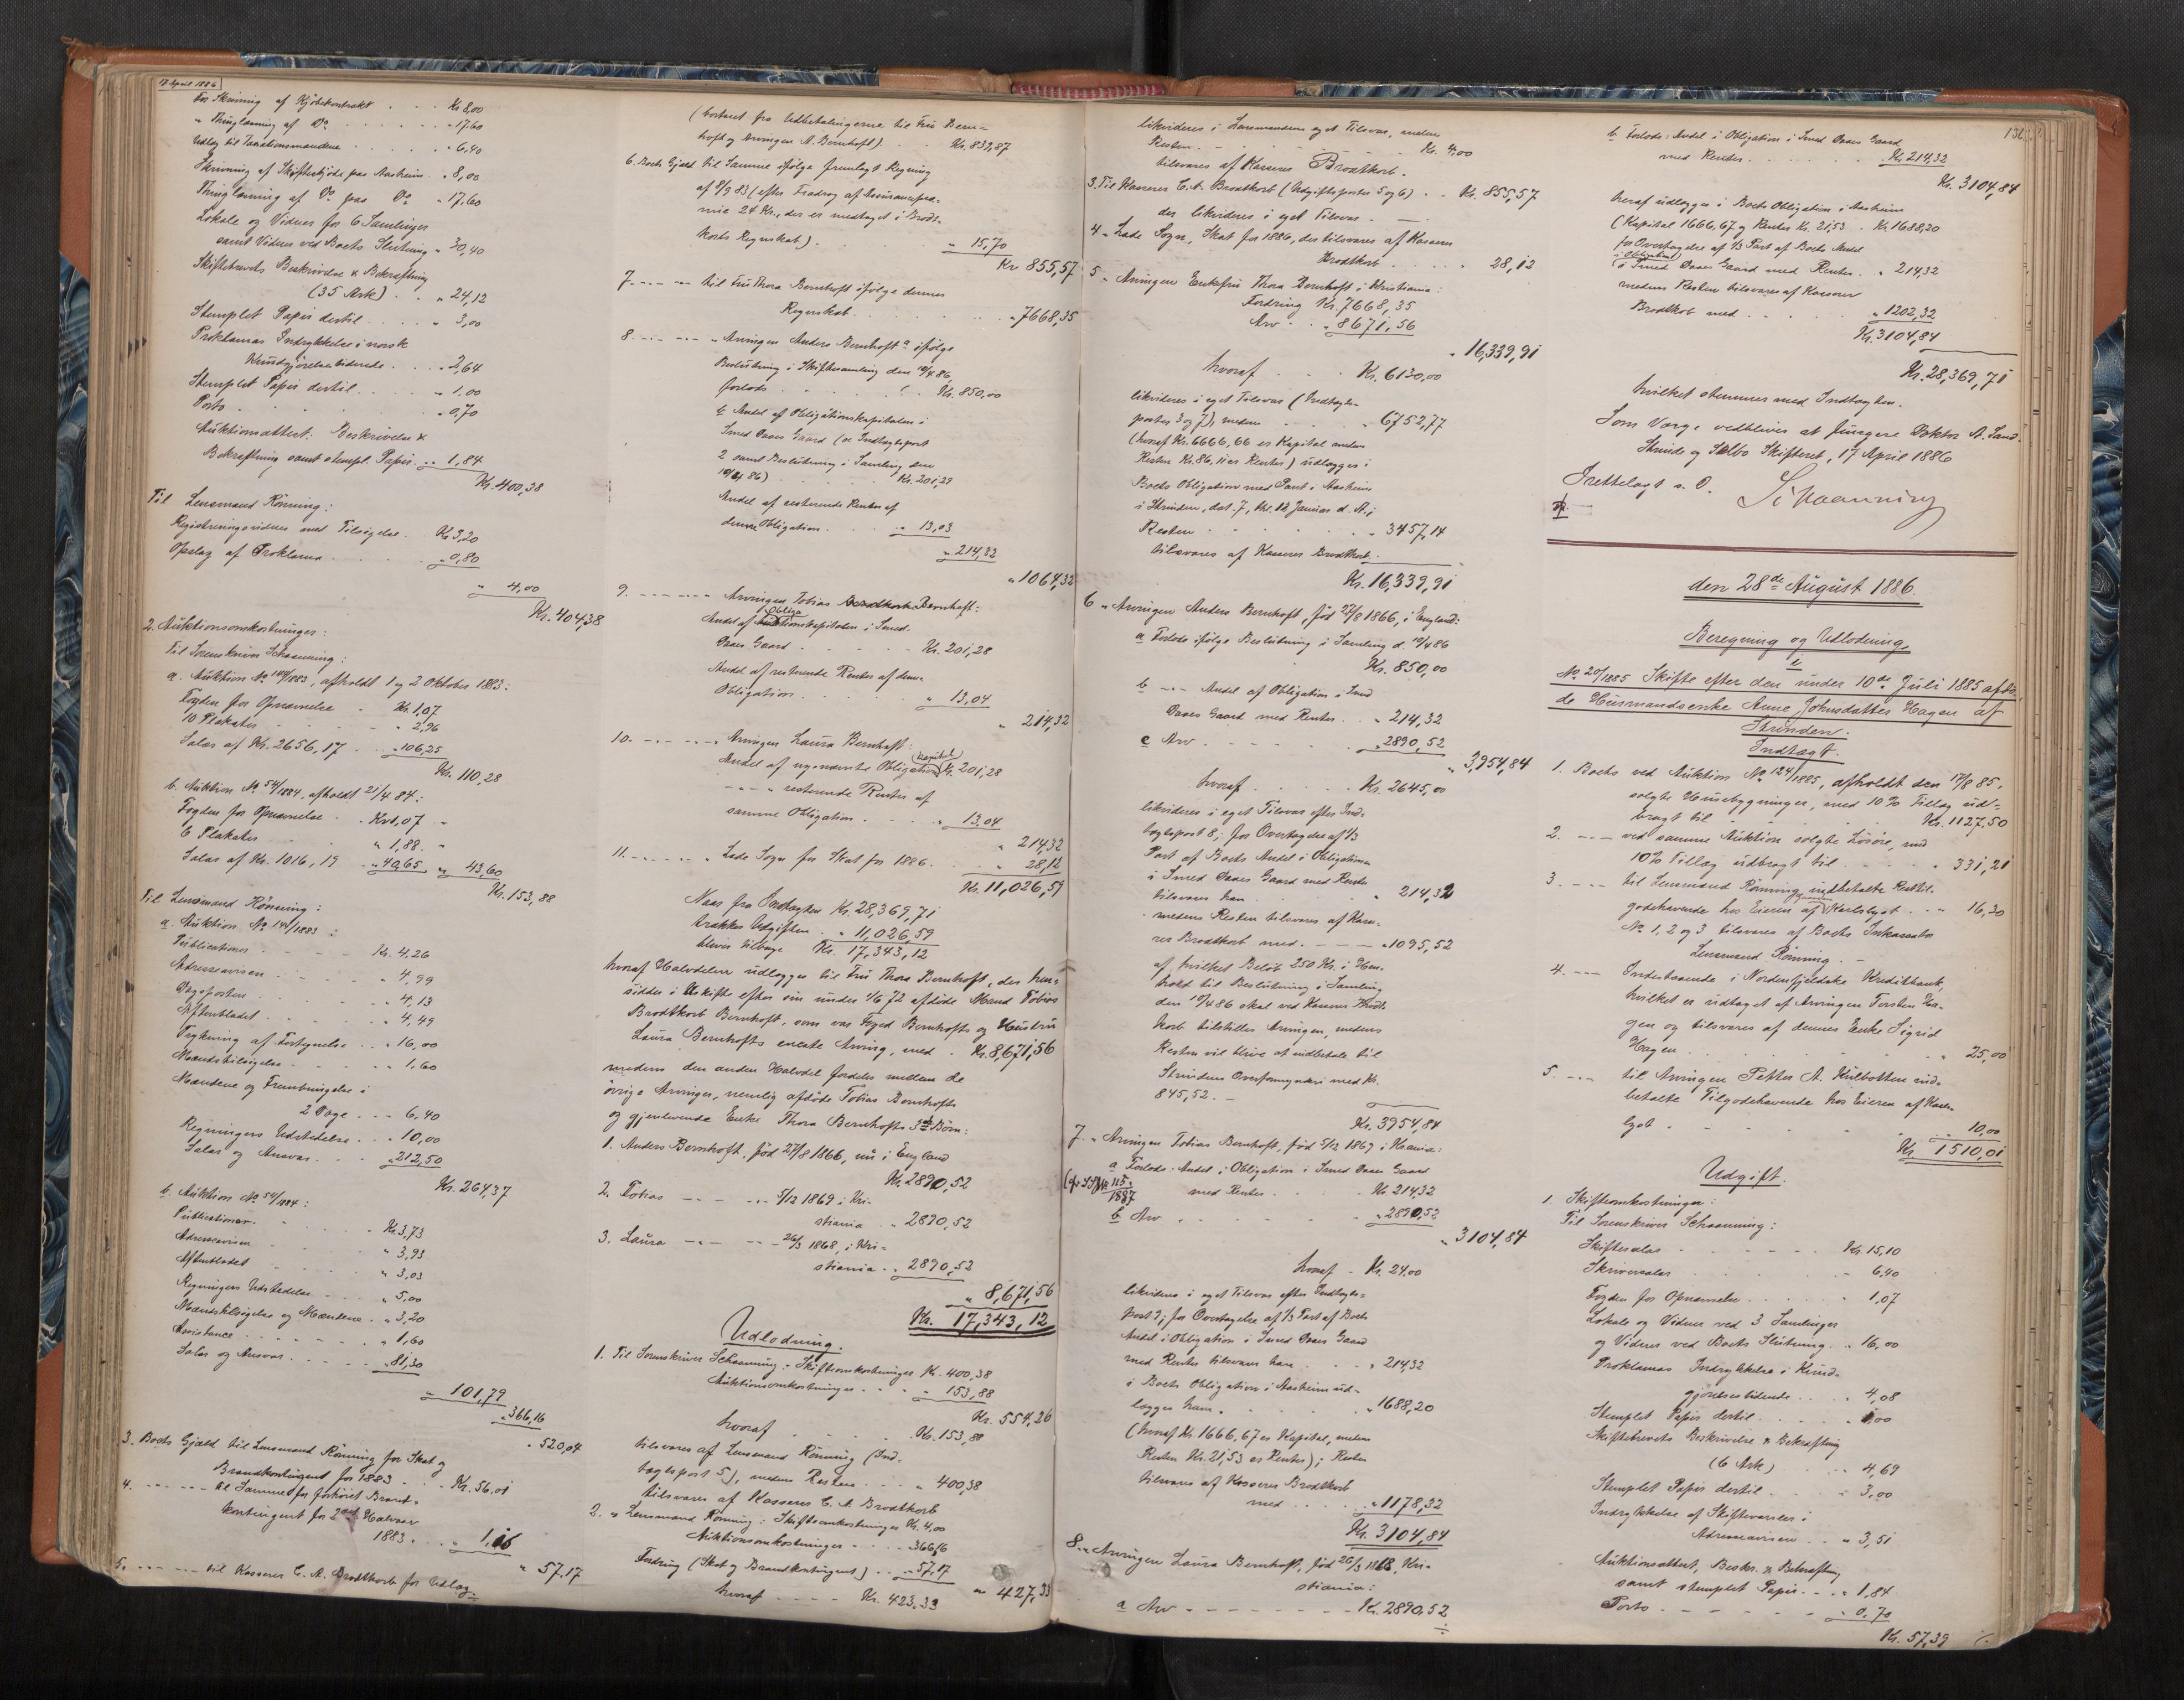 17 April 1886
For Skrivning af Kjöbekontrakt . . . Kr. 8,00
" Thinglæsning af Do . . . " 17,60
Udlæg til Taxationsmændene . . . " 6,40
Skrivning af Skifteskjöde paa Aasheim . " 8,00
Thinglæsning af Do paa Do " 17,60
Lokale og Vidner for 6 Samlinger
samt Vidner ved Boets Slutning " 30,40
Skiftebrevets Beskrivelse & Bekræftning
(35 Ark) . . " 24,12
Stemplet Papir dertil . . . . " 3,00
Proklamas Indrykkelse i norsk
Kundgjörelsestidende . . . " 2,64
Stemplet Papir dertil . . . . " 1,00
Porto . . . . " 0,70
Auktionsattest: Beskrivelse &
Bekræftning samt stempl. Papir . " 1,84
Kr. 400,38
Til Lensmand Rönning:
Registreringsvidner med Tilsigelse . Kr 3,20
Opslag af Proklama . . . . " 0,80
" 4,00
Kr. 404,38
2. Auktionsomkostninger:
Til Sorenskriver Schaanning:
a. Auktion No 141/1883, afholdt 1 og 2 Oktober 1883:
Fogden for Opnævnelse . Kr. 1,07
10 Plakater . . . " 2,96
Salær af Kr. 2656,17 . . " 106,25
Kr. 110,28
b. Auktion No 54/1884, afholdt 21/4 84:
Fogden for Opnævnelse . . Kr. 1,07
6 Plakater . . " 1,88
Salær af Kr. 1016,19 . . " 40,65 " 43,60
Kr. 153,88
Til Lensmand Rönning:
a. Auktion No 141/1883:
Publicationer . . . . Kr. 4,26
Adresseavisen . . . . " 4,99
Dagsposten . . . . " 4,13
Aftenbladet . . . . " 4,49
Trykning af Fortegnelse . . " 16,00
Mandstilsigelse . . . . " 1,60
Mændene og Frembringelse i
2 Dage . . . " 6,40
Regningers Udstedelse . . . " 10,00
Salær og Ansvar . . . " 212,50
Kr. 264,37
b. Auktion No 54/1884:
Publicationer . . . . Kr. 3,73
Adresseavisen . . . " 3,93
Aftenbladet . . . " 3,03
Regningers Udstedelse . . . " 5,00
Mandstilsigelse og Mændene . " 3,20
Assistance . . . . " 1,60
Salær og Ansvar . . . " 81,30
" 101,79
" 366,16
" 520,04
3. Boets Gjæld til Lensmand Rönning for Skat og
Brandkontingent for 1883 . . . Kr. 56,01
4. - - - - til Samme for forhöiet Brand-
kontingent for 2det Halvaar
1883 . . " 1,16
" 57,17
5. - - - - til Kasserer C. A. Brodtkorb for Udlæg
(bortseet fra Udbetalingerne til Fru Bern-
hoft og Arvingen A. Bernhoft) . . . Kr. 839,87
6. Boets Gjæld til Samme ifölge fremlagt Regning
af 8/9 83 (efter Fradrag af Assurancepræ-
mie 24 Kr., der er medtaget i Brodt-
korbs Regnskab) . . . " 15,70
Kr 855,57
7. - - - - til Fru Thora Bernhoft ifölge dennes
Regnskab . . . . " 7668,35
8. - - - - " Arvingen Anders Bernhoft a ifölge
Beslutning i Skiftesamling den 10/4 86
forlods . . . . Kr. 850,00
b Andel af Obligationskapitalen i
Smed Oaes Gaard (se Indtægtspost
2 samt Beslutning i Samling den
10/4 86) . . . . Kr. 201,29
Andel af resterende Renter af
denne Obligation . . . " 13,03
" 214,32
" 1064,32
9. - - - - Arvingen Tobias Bernhoft:
Andel af Obligationskapitalen i Smed
Oaes Gaard . . . Kr. 201,28
Andel af resterende Renter af denne
Obligation . . . " 13,04
" 214,32
10. - - - - Arvingen Laura Bernhoft:
Andel af nysnævnte Obligations kapital Kr. 201,28
- - " resterende Renter af
samme Obligation . . . " 13,04
" 214,32
11. - - - - " Lade Sogn for Skat for 1886 . . " 28,12
Kr. 11,026,59
Naar fra Indtægten Kr. 28,369,71
trækkes Udgiften . " 11,026,59
bliver tilbage Kr. 17,343,12
hvoraf Halvdelen udlægges til Fru Thora Bernhoft, der hen-
sidder i Uskifte efter sin under 1/6 72 afdöde Mand Tobias
Brodtkorb Bernhoft, som var Foged Bernhofts og Hustru
Laura Bernhofts eneste Arving, med . Kr. 8,671,56
medens den anden Halvdel fordeles mellem de
övrige Arvinger, nemlig afdöde Tobias Bernhofts
og gjenlevende Enke Thora Bernhofts 3de Börn:
1. Anders Bernhoft, född 27/8 1866, nu i England
Kr. 2890,52
2. Tobias - - - 5/12 1869, i Kri-
stiania . . " 2890,52
3. Laura - - - 26/3 1868, i Kri-
stiania . . " 2890,52
" 8,671,56
Kr. 17,343,12
Udlodning.
1. Til Sorenskriver Schaanning: Skifteomkostninger Kr. 400,38
Auktionsomkostninger . . . " 153,88
Kr. 554,26
hvoraf . . . . Kr. 153,88
tilsvares af Lensmand Rönning (Ind-
tægtspost 5), medens Resten . . . " 400,38
tilsvares af Kasserer C. A. Brodtkorb
2. " Lensmand Rönning: Skifteomkostninger Kr. 4,00
Auktionsomkostninger . . . " 366,16
Fordring (Skat og Brandkontingent) . . " 57,17
" 427,33
hvoraf . . . . Kr. 423,33
likvideres i Lensmandens eget Tilsvar, medens
Resten . . . . Kr. 4,00
tilsvares af Kasserer Brodtkorb.
3. Til Kasserer C. A. Brodtkorb (Udgiftsposter 5 og 6) . . Kr. 855,57
der likvideres i eget Tilsvar. —
4 " Lade Sogn, Skat for 1886, der tilsvares af Kasserer
Brodtkorb . . . . " 28,12
5 " Arvingen Enkefru Thora Bernhoft i Kristiania:
Fordring Kr. 7668,35
Arv . . " 8671,56
" 16,339,91
hvoraf . . . Kr. 6130,00
likvideres i eget Tilsvar (Indtægts-
poster 3 og 7), medens . . . " 6752,77
(hvoraf Kr. 6666,66 er Kapital medens
Resten Kr. 86,11 er Renter) udlægges i
Boets Obligation med Pant i Aasheim
i Strinden, dat. 7, thl. 12 Januar d. A.;
Resten . . . . " 3457,14
tilsvares af Kasserer Brodtkorb.
Kr. 16,339,91
6 " Arvingen Anders Bernhoft, född 27/8 1866, i England:
a Forlods ifölge Beslutning i Samling d. 10/4 86
Kr. 850,00
b - - Andel af Obligation i Smed
Oaes Gaard med Renter . . " 214,32
c Arv . . . . " 2890,52
" 3,954,84
hvoraf . . . . Kr. 2645,00
likvideres i eget Tilsvar efter Ind-
tægtspost 8; for Overtagelse af 1/3
Part af Boets Andel i Obligation
i Smed Oaes Gaard med Renter
tilsvarer han . . . " 214,32
medens Resten tilsvares af Kasse-
rer Brodtkorb med . . . " 1095,52
af hvilket Belöb 250 Kr. i Hen-
hold til Beslutning i Samling
den 10/4 86 skal ved Kasserer Brodt-
korb tilstilles Arvingen, medens
Resten vil blive at indbetale til
Strindens Overformynderi med Kr.
845,52. —
Kr. 3954,84
7. " Arvingen Tobias Bernhoft, född 5/12 1869 i Krania:
a Forlods: Andel i Obligation i Smed Oaes Gaard
med Renter . . . Kr. 214,32
b Arv . . . . " 2890,52
" 3104,84
hvoraf . Kr. 24,00
likvideres i eget Tilsvar efter Indtægts-
post 9; for Overtagelse af 1/3 Part af Boets
Andel i Obligation i Smed Oaes Gaard
med Renter tilsvarer han . . . " 214,32
i Boets Obligation i Aasheim ud-
lægges ham . . . . " 1688,20
(hvoraf Kr. 1666,67 er Kapital, medens
Resten Kr. 21,53 er Renter); Resten
tilsvares af Kasserer Brodtkorb
med . . . . " 1178,32
Kr. 3104,84
8. " Arvingen Laura Bernhoft, född 26/3 1868, Kri-
stiania:
a Arv - - - - - Kr. 2890,52
b. Forlods: Andel i Obligation i Smed Oaes Gaard
med Renter . . . . Kr. 214,32
Kr. 3104,84
heraf udlægges i Boets Obligation i Aasheim
(Kapital 1666,67 og Renter Kr. 21,53 . Kr. 1688,20
for Overtagelse af 1/3 Part af Boets Andel
i Obligation i Smed Oaes Gaard med Renter . " 214,32
medens Resten tilsvares af Kasserer
Brodtkorb med . . . " 1202,32
Kr. 3104,84
Kr. 28,369,71
hvilket stemmer med Indtægten.
Som Værge vedbliver at fungere Doktor A. Sand.
Strinda og Selbo Skifteret, 17 April 1886
Schaanning
Irettelagt s. D.
den 28de August 1886.
Beregning og Udlodning,
i
No. 20/1885 Skifte efter den under 10de Juli 1885 afdö-
de Husmandsenke Anne Johnsdatter Hagen af
Strinden.
Indtægt.
1. Boets ved Auktion No 124/1885, afholdt den 17/8 85,
solgte Husebygninger, med 10% Tillæg ud-
bragt til . . . . Kr. 1127,50
2. - - - ved samme Auktion solgte Lösöre, med
10% Tillæg udbragt til . . . . " 331,21
3. - - - til Lensmand Rönning indbetalte Resttil-
godehavende hos Eieren af Gaarden Karlslyst . . " 16,30
No 1, 2 og 3 tilsvares af Boets Inkassator
Lensmand Rönning. —
4. - - - Indestaaende i Nordenfjeldske Kreditbank,
hvilket er udtaget af Arvingen Torsten Ha-
gen og tilsvares af dennes Enke Sigrid
Hagen . . . . " 25,00
5. - - - til Arvingen Petter A. Kulbotten ind-
betalte Tilgodehavende hos Eieren af Karls-
lyst . . . . " 10,00
Kr. 1510,01
Udgift.
1. Skifteomkostninger:
Til Sorenskriver Schaanning:
Skiftesalær . . . . Kr. 15,10
Skriversalær . . . . " 6,40
Fogden for Opnævnelse . . . . " 1,07
Lokale og Vidner ved 3 Samlinger
og Vidner ved Boets Slutning . " 16,00
Proklamas Indrykkelse i Kund-
gjörelsestidende . . . " 4,08
Stemplet Papir dertil . . . . " 1,00
Skiftebrevets Beskrivelse & Bekræftning
(6 Ark) . . . " 4,69
Stemplet Papir dertil . . . " 3,00
Indrykkelse af Skiftevarsler i
Adresseavisen . . " 3,51
Auktionsattest, Beskr. & Bekræftning
samt stemplet Papir . . . " 1,84
Porto - - - - " 0,70
Kr. 57,39